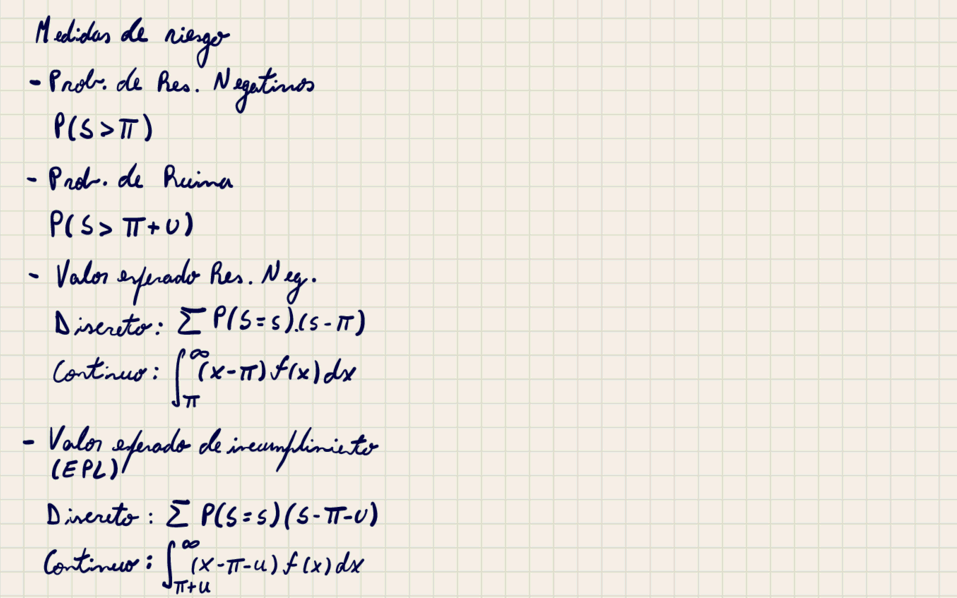 Medidas de riesgo
- Prob. de Res. Negativos
P(S > π)
- Prob. de Ruina
P(S > π + U)
- Valor esperado Res. Neg.
Discreto: Σ P(S=s).(s-π)
Continuo: ∫_π^∞ (x-π) f(x) dx
- Valor esperado de incumplimiento
(EPL)
Discreto: Σ P(S=s)(s-π-U)
Continuo: ∫_{π+u}^∞ (x-π-u) f(x) dx